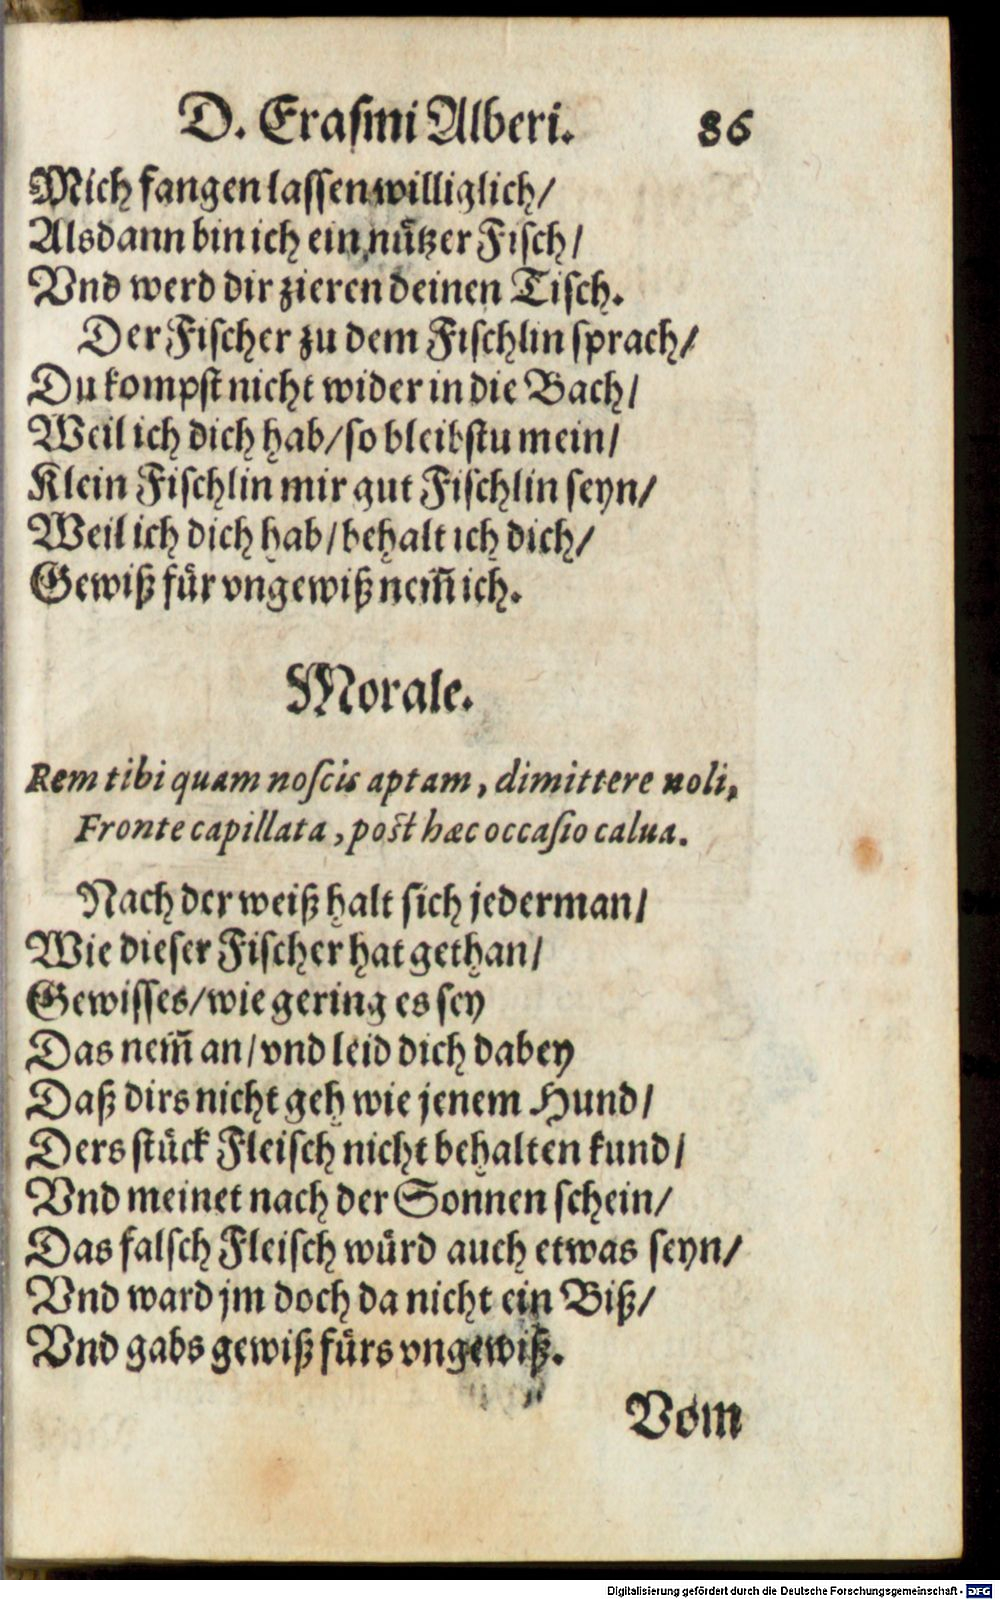 D. Eraſmi Alberi. 86
Mich fangen laſſen williglich/
Alsdann bin ich ein nuͤtzer Fiſch/
Vnd werd dir zieren deinen Tiſch.
Der Fiſcher zu dem Fiſchlin ſprach/
Du kompſt nicht wider in die Bach/
Weil ich dich hab/ ſo bleibſtu mein/
Klein Fiſchlin mir gut Fiſchlin ſeyn/
Weil ich dich hab/ behalt ich dich/
Gewiß fuͤr vngewiß nem̃ ich.
Morale.
Rem tibi quam noſcis aptam, dimittere noli,
Fronte capillata, poſt hæc occaſio calua.
Nach der weiß halt ſich jederman/
Wie dieſer Fiſcher hat gethan/
Gewiſſes/ wie gering es ſey
Das nem̃ an/ vnd leid dich dabey
Daß dirs nicht geh wie jenem Hund/
Ders ſtuͤck Fleiſch nicht behalten kund/
Vnd meinet nach der Sonnen ſchein/
Das falſch Fleiſch wuͤrd auch etwas ſeyn/
Vnd ward jm doch da nicht ein Biß/
Vnd gabs gewiß fuͤrs vngewiß.
Vom
Digitalisierung gefördert durch die Deutsche Forschungsgemeinschaft - DFG